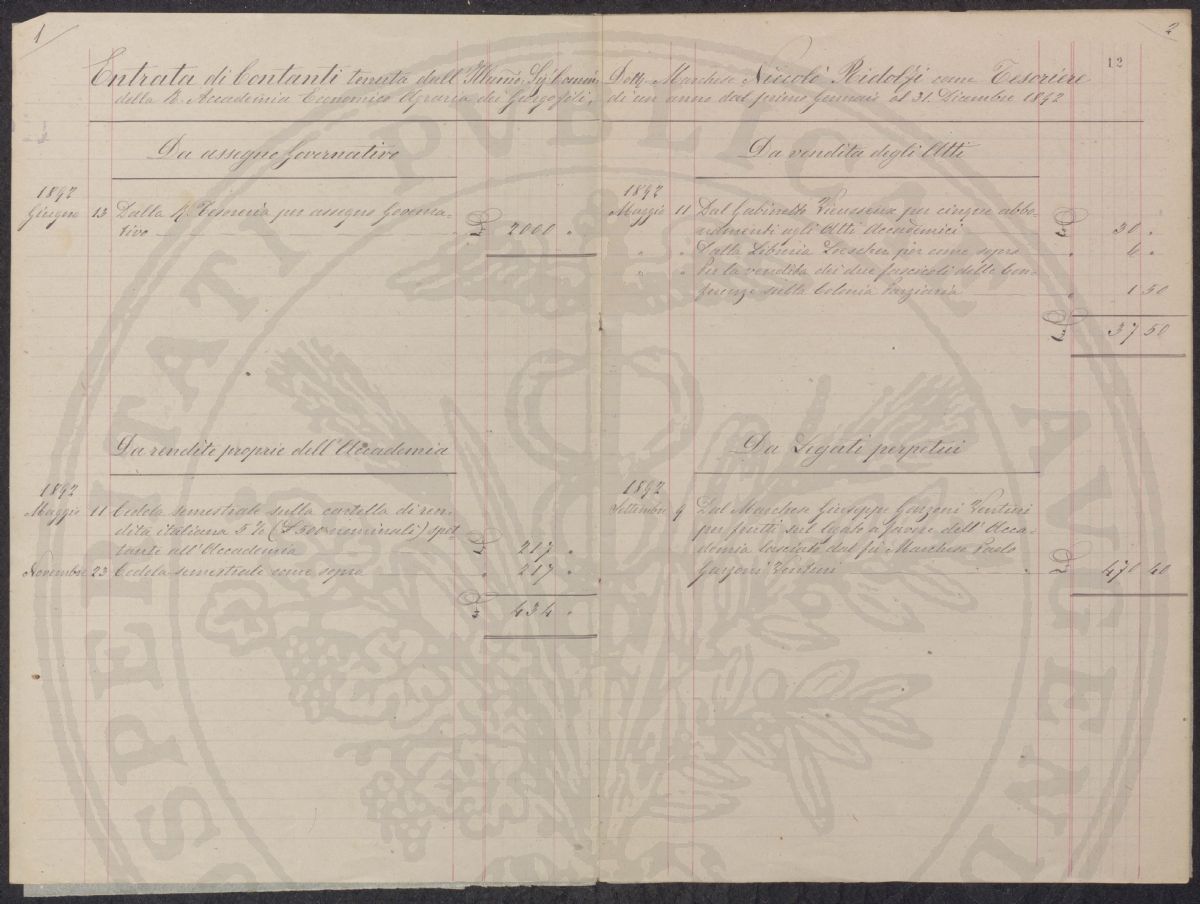 1
2
12
Entrata di Contanti tenuta dall' Illmo. Sig. Comm. Dott. Marchese Niccolò Ridolfi come Tesoriere
della R. Accademia Economico Agraria dei Georgofili, di un anno dal primo Gennaio al 31. Dicembre 1892
Da assegno Governativo
1892
Giugno 13 Dalla R. Tesoreria per assegno Governa-
tivo £ 2000 "
Da vendita degli Atti
1892
Maggio 11 Dal Gabinetto Vieusseux per cinque abbo-
namenti agli Atti Accademici £ 30 "
" " Dalla Libreria Loescher per come sopra " 6 "
" " Per la vendita dei due fascicoli delle Con-
ferenze sulla Colonia Parziaria " 1 50
£ 37 50
Da rendite proprie dell' Accademia
1892
Maggio 11 Cedola semestrale sulla cartella di ren-
dita italiana 5 % (£ 500 nominali) spet
tante all' Accademia £ 217 "
Novembre 23 Cedola semestrale come sopra " 217 "
£ 434 "
Da Legati perpetui
1892
Settembre 9 Dal Marchese Giuseppe Garzoni Venturi
per frutti sul legato a favore dell' Acca-
demia lasciato dal fu Marchese Paolo
Garzoni Venturi £ 470 40
PROSPERITATI PUBLICAE AUGENDAE